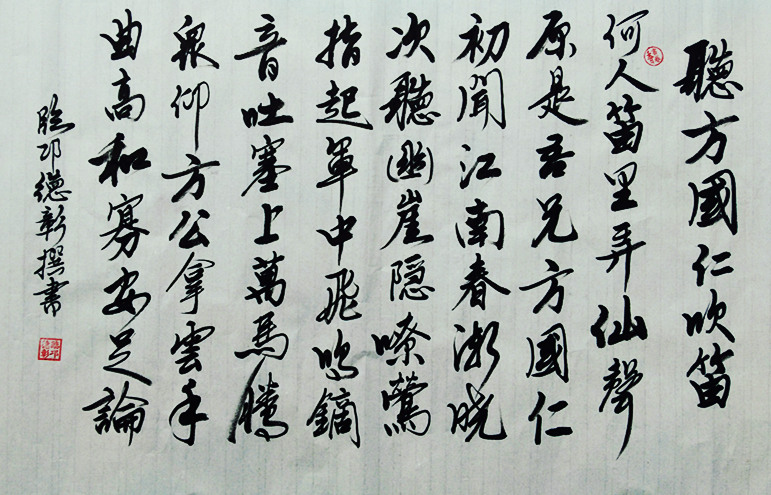 聽方國仁吹笛
何人笛里弄仙聲
原是吾兄方國仁
初聞江南春漸曉
次聽幽崖隱嘹鶯
指起軍中飛鳴鏑
音吐塞上萬馬騰
衆仰方公拿雲手
曲高和寡安足論
臨邛德彰撰書